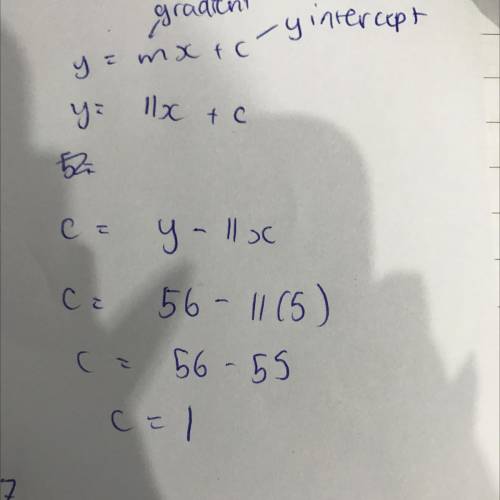 gradient
y = mx + c – y intercept
y = 11x + c
c = y - 11x
c = 56 - 11(5)
c = 56 - 55
c = 1
7